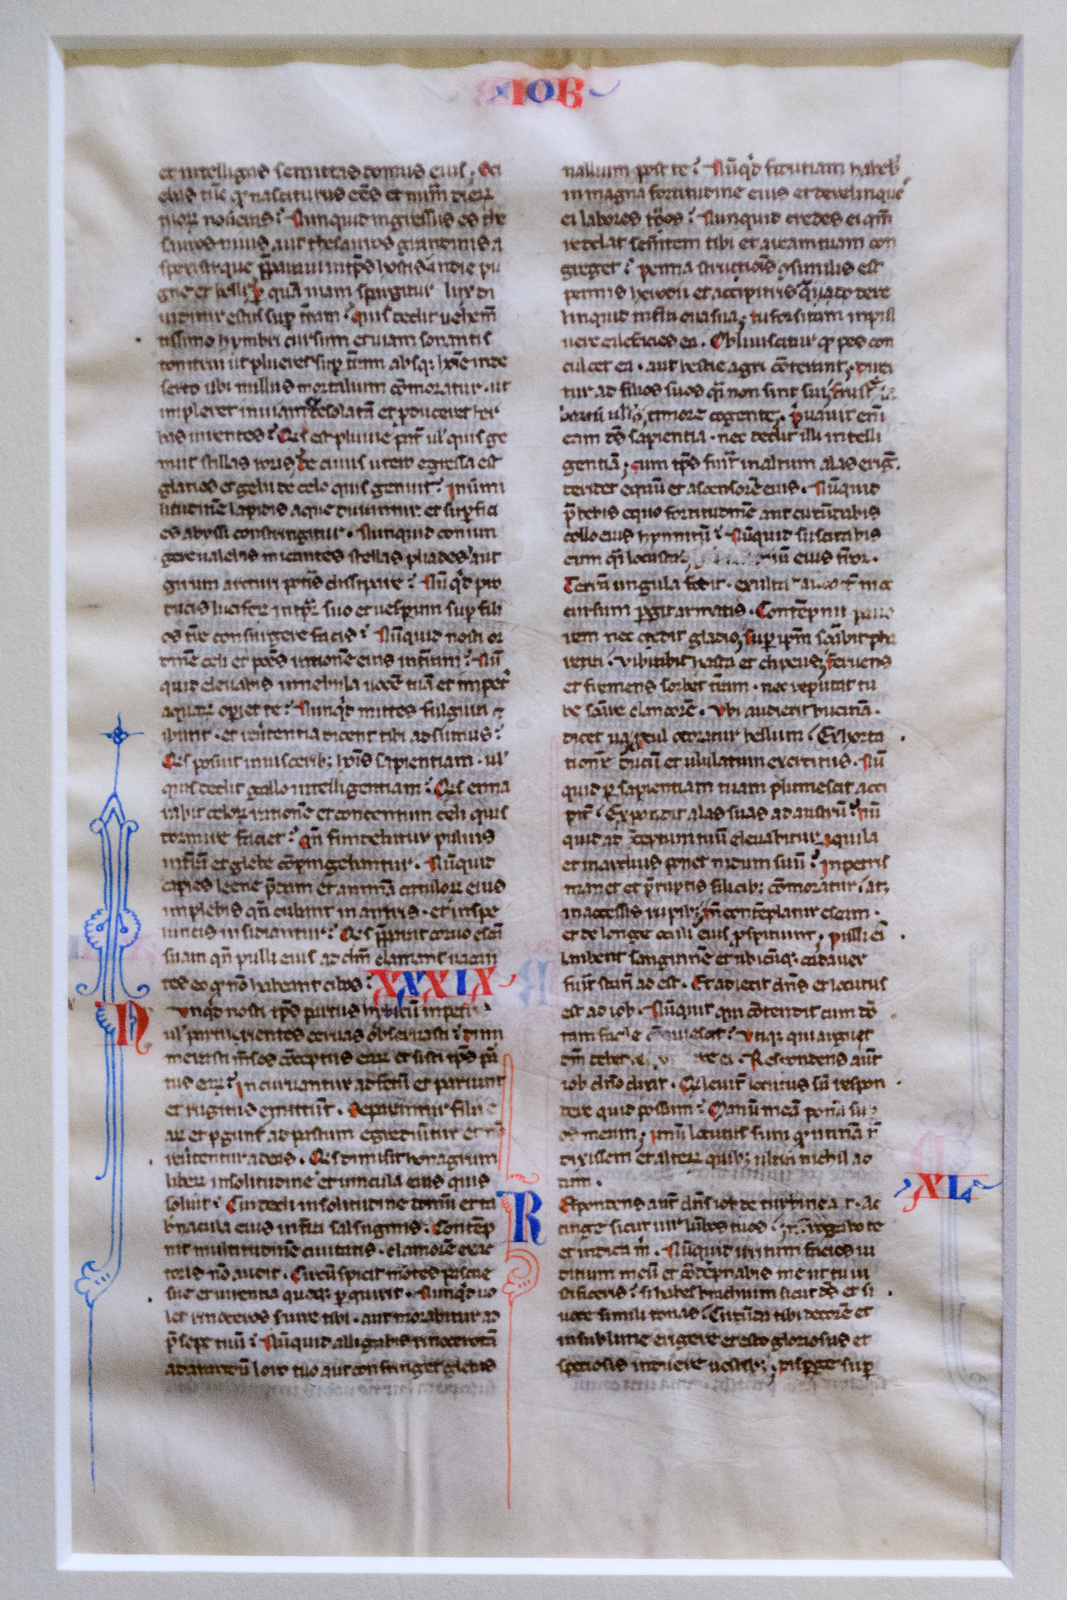 IOB
et intelligas semitas domus eius. Sci
ebas tūc qͥ nasciturus eēs et nūm dierꝝ
tuoꝝ noueras? Nunquid ingressus es the
sauros niuis aut thesauros grandinis a
spexisti que p̄paraui in tp̄s hostis in diē pu
gne et belli? p quā uiam spargitur lux di
uiditur estus sup terram? Quis dedit uehem̄
tissimo hymbri cursum et uiam sonantis
tonitrui ut plueret sup tram absqꝫ hoīe in de
serto ubi nullus mortalium cōmoratur. ut
impleret inuiam desolatā et produceret her
bas uirentes? Quis est pluuie pr̄ ul quis ge
nuit stillas roris? De cuius utero egressa est
glacies et gelu de celo quis genuit? In simi
litudinē lapidis aque durantur. et supfici
es abyssi constringitur. Nunquid coniun
gere ualebis micantes stellas pliades aut
girum arcturi pot̄is dissipare? Nūqͥd pro
ducis luciferū in tp̄r suo et uesperum sup fili
os tre consurgere facis? Nūquid nosti or
dinē celi et pones rationē eius in terram? Nū
quid eleuabis in nebula uocē tuā et impet
aquaꝝ operiet te? Nunqͥd mittes fulgura et
ibunt. et reūtentia dicent tibi adsumus?
Quis posuit in uisceribꝫ hoīs sapientiam. ul
quis dedit gallo intelligentiam? Quis enar
rabit celoꝝ rationē et concentum celi quis
dormire faciet? Qn̄ fundebatur puluis
in terra et glebe cōpingebantur. Nūquid
capies leene predam et animā catuloꝝ eius
implebis qn̄ cubant in antris. et in spe
luncis insidiantur? Quis p̄parat coruo escā
suam qn̄ pulli eius ad dm̄ clamant uagan
tes eo qͥ nō habeant cibos? XXXIX
Nunqͥd nosti tp̄s partus hybicū in petris
ul parturientes ceruas obseruasti? Dinu
merasti mēses cōceptus earꝝ et scisti tp̄s par
tus earꝝ? Incuruantur ad fetū et pariunt
et rugitus emittūt. Separantur filii e
arꝝ et pergunt ad pastum egrediūtur et nō
reūtentur ad eas. Quis dimisit honagrum
liberū in solitudine et uincula eius quis
soluit? Cui dedi in solitudine domū et ta
bnacula eius in terra salsuginis. Contēp
nit multitudinē ciuitatis. clamorē exac
toris nō audit. Circūspicit mōtes pascue
sue et uirentia queqꝫ perquirit. Nunqͥd uo
let rinoceros seruire tibi. aut morabitur ad
p̄sepe tuū? Nūquid alligabis rinocerotā
ad arandū loro tuo aut confringet glebas
ualliium post te? Nūqͥd fiduciam habeb̄
in magna fortitudine eius et derelinques
ei labores tuos? Nunquid credes ei qm̄
reddat sementem tibi et aream tuam con
greget? Penna structionis similis est
pennis herodii et accipitris. Quādo dere
linquid in terra oua sua, tu forsitam in pul
uere calefacies ea. Obliuiscitur qͥ pes con
culcet ea. aut bestie agri cōterant. Duci
tur ad filios suos qͥ non sint sui frustra la
borauit nullo timore cogente. Priuauit eni
eam ds sapientia. nec dedit illi intelli
gentiā. Cum tp̄s fuit in altum alas erigit
deridet equū et ascensorē eius. Nūquid
p̄bebis equo fortitudinē aut circūdabis
collo eius hynnitū? Nūquid suscitabis
eum qͥ locustas
Terrā ungula fodit. exultat
cursum pergit armatis. Contēpnit pauo
rem nec cedit gladio, sup ipm̄ sonabit pha
retra. uibrabit hasta et clypeus, feruens
et fremens sorbet terram. nec reputat tu
be sonare clangorē. Ubi audierit bucinā
dicet uah, procul odoratur bellum. Exhorta
tionē ducū et ululatum exercitus. Nū
quid per sapientiam tuam plumescit acci
piter? Expandit alas suas ad austrū? Nū
quid ad preceptum tuū eleuabitur aquila
et in arduis ponet nidum suū? In petris
manet et p̄ruptis silicibꝫ cōmoratur. atqꝫ
in accessis rupibꝫ. Inde cōtēplatur escam.
et de longe oculi eius prospiciunt. Pulli ei
lambent sanguinē et ubicūqꝫ cadauer
fuit statim adest. Et adiecit dns et locutus
est ad iob. Nūquit qui cōtendit cum do
tam facile Utiqꝫ qui arguit
dm̄ debet ei. Respondens aut
iob dn̄o dixit. Qui leuit locutus sū respon
dere quid possum? Manū meā ponā su
os meum. Unū locutus sum qͥ utinā n̄
dixissem et alterꝝ quibꝫ ultra nichil ad
dam. XL
Respondens aut dn̄s iob de turbine ait. Ac
cinge sicut uir lūbos tuos. Interrogabo te
et indica m̄. Nūquid irritum facies iu
ditium meū et cōdēpnabis me ut tu iu
stificeris? Si habes brachium sicut ds et si
uoce simili tonas? Circūda tibi decorē et
in sublime erigere et esto gloriosus et
speciosis induere uestibꝫ. Disperge sup